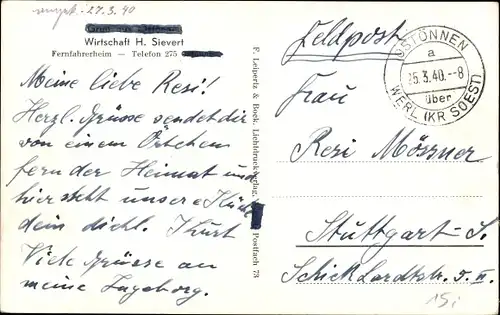 empf. 27.3.40
Gruß aus Ostönnen
Wirtschaft H. Sievert
Fernfahrerheim — Telefon 275
Meine liebe Resi!
Herzl. Grüsse sendet dir
von einem Örtchen
fern der Heimat und
hier steht unsere Küche
dein dichl. Kurt
Viele Grüsse an
meine Ingeborg.
F. Leipertz & Bock, Lichtdruckverlag, Postfach 73
Feldpost
OSTÖNNEN
a
25.3.40.--8
über
WERL (KR SOEST)
Frau
Resi Mössner
Stuttgart-S.
Schickhardtstr. 5. II.
15i